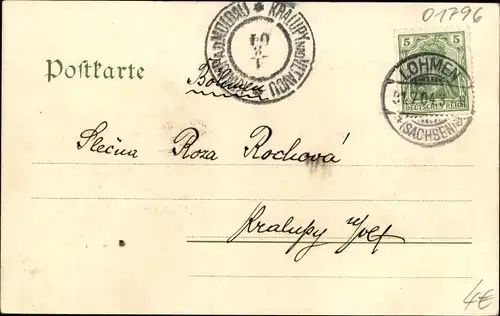 01796
Postkarte
KRALUPY NAD VLTAVOU
04
5
DEUTSCHES REICH
LOHMEN
(SACHSEN)
Böhmen
Slečna Roza Rochová
Kralupy
4€